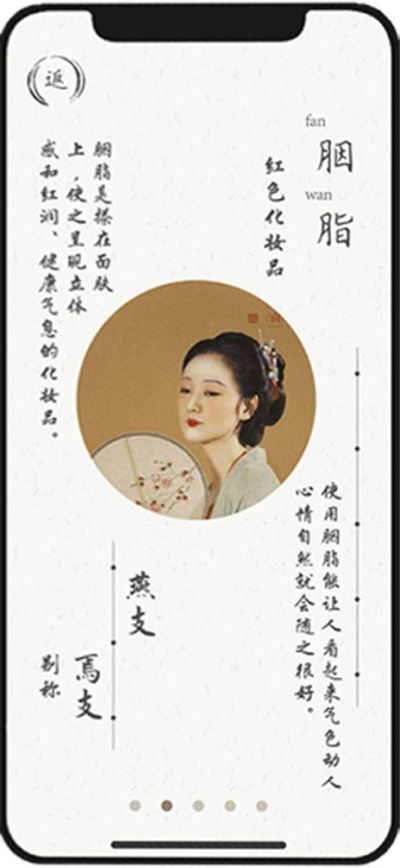 返
fan
胭
wan
脂
红色化妆品
胭脂是搽在面肤
上，使之呈现立体
感和红润、健康气息的化妆品。
使用胭脂能让人看起来气色动人
心情自然就会随之很好。
燕支
焉支
别称